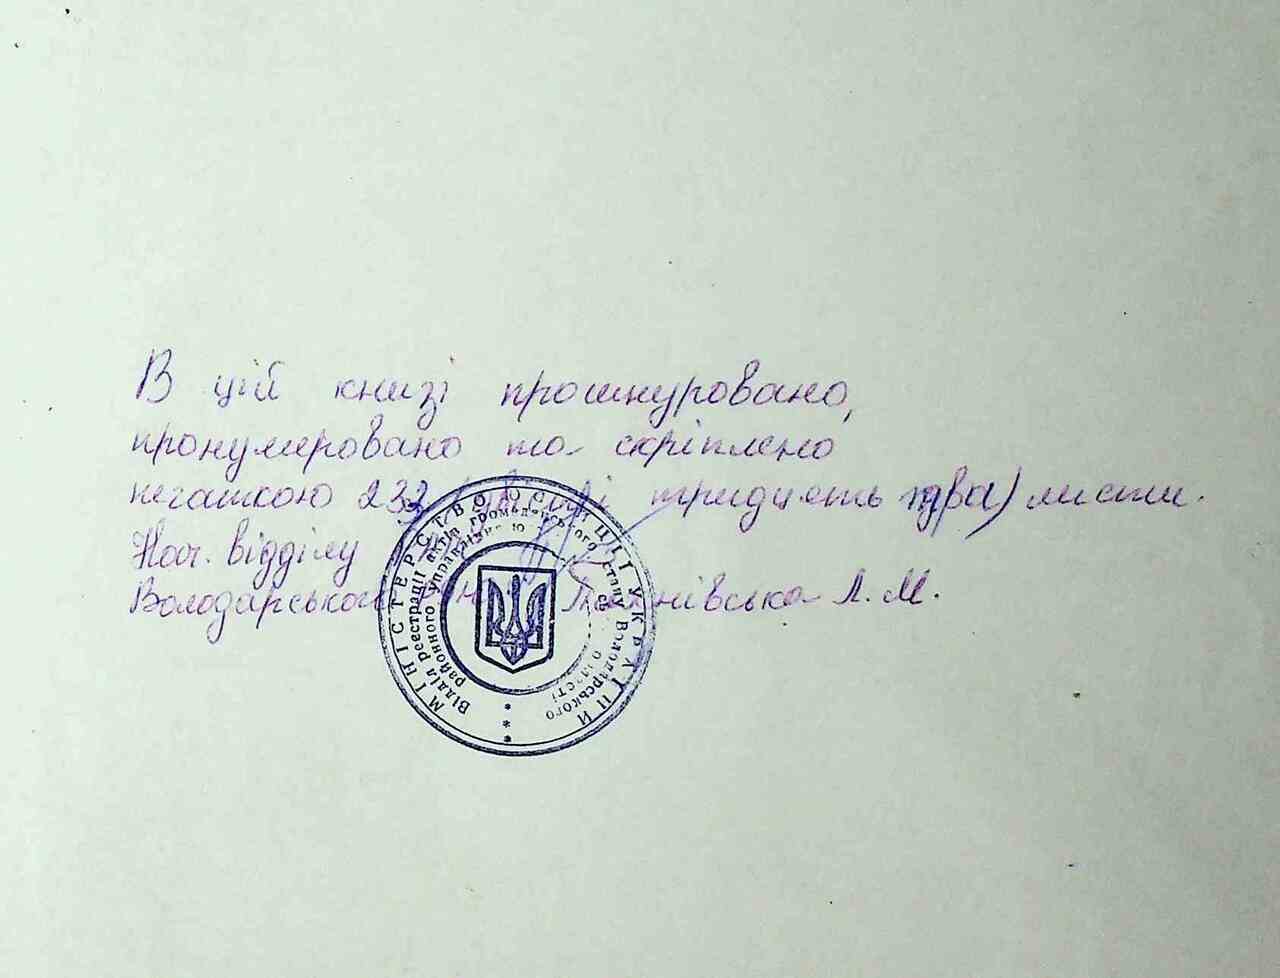 В цій книзі прошнуровано,
пронумеровано та скріплено
печаткою 232 (двісті тридцять два) листи.
Нач. відділу
Володарського Л.М.
МІНІСТЕРСТВО ЮСТИЦІЇ УКРАЇНИ
Відділ реєстрації актів громадянського стану Володарського
районного управління області
* * *